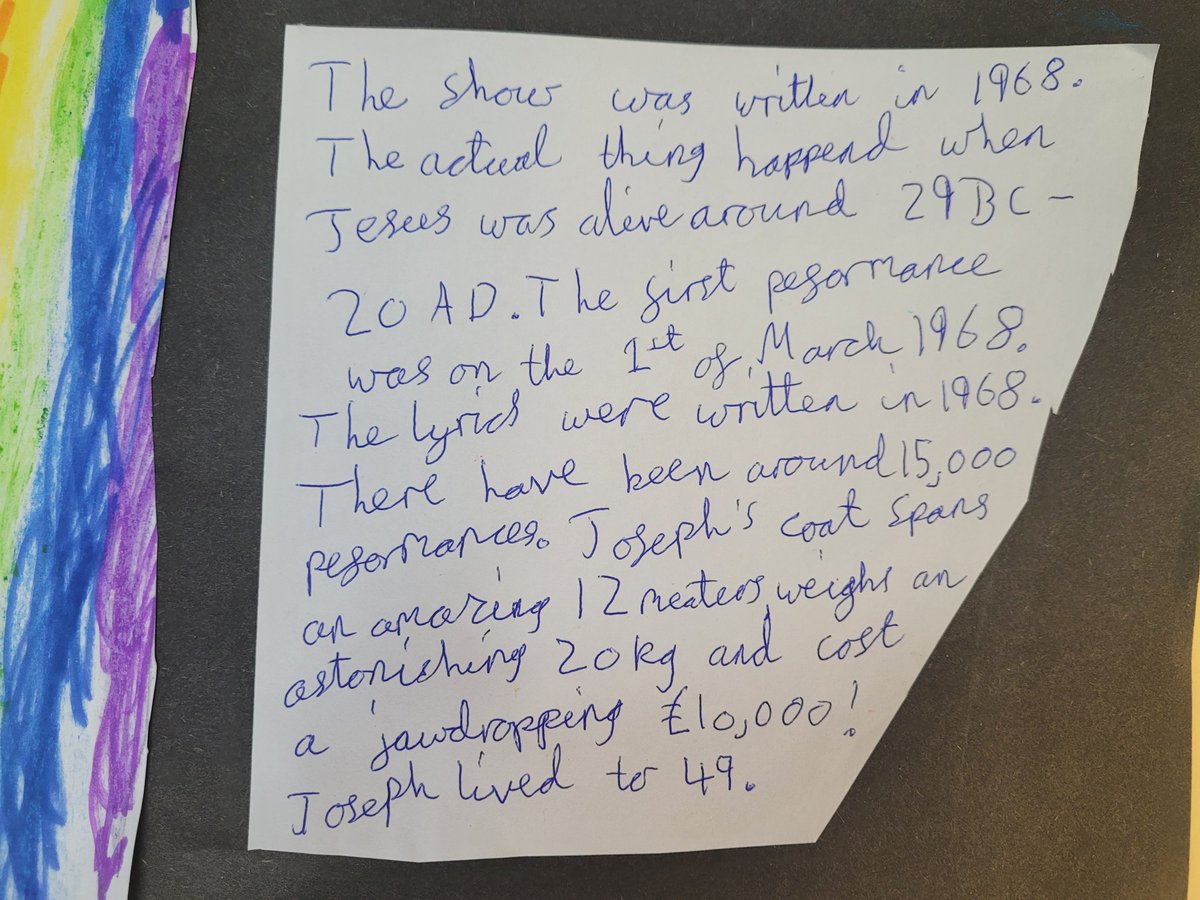 The show was written in 1968.
The actual thing happend when
Jesus was alive around 29 BC -
20 AD. The first pesormance
was on the 1st of March 1968.
The lyrics were written in 1968.
There have been around 15,000
pesormances. Joseph's coat spans
an amazing 12 meaters weighs an
astonishing 20kg and cost
a jawdropping £10,000!
Joseph lived to 49.